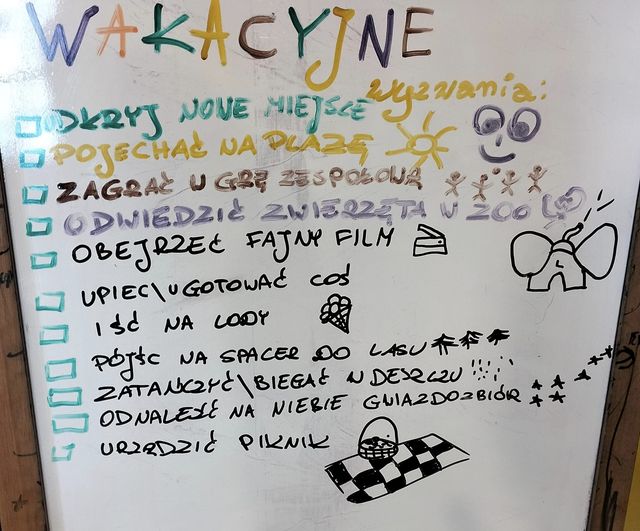 WAKACYJNE
wyzwania:
ODKRYJ NOWE MIEJSCE
POJECHAĆ NA PLAŻĘ
ZAGRAĆ W GRĘ ZESPOŁOWĄ
ODWIEDZIĆ ZWIERZĘTA W ZOO
OBEJRZEĆ FAJNY FILM
UPIEC\UGOTOWAĆ COŚ
IŚĆ NA LODY
PÓJŚC NA SPACER DO LASU
ZATAŃCZYĆ\BIEGAĆ W DESZCZU
ODNALEŹĆ NA NIEBIE GWIAZDOZBIÓR
URZĄDZIĆ PIKNIK